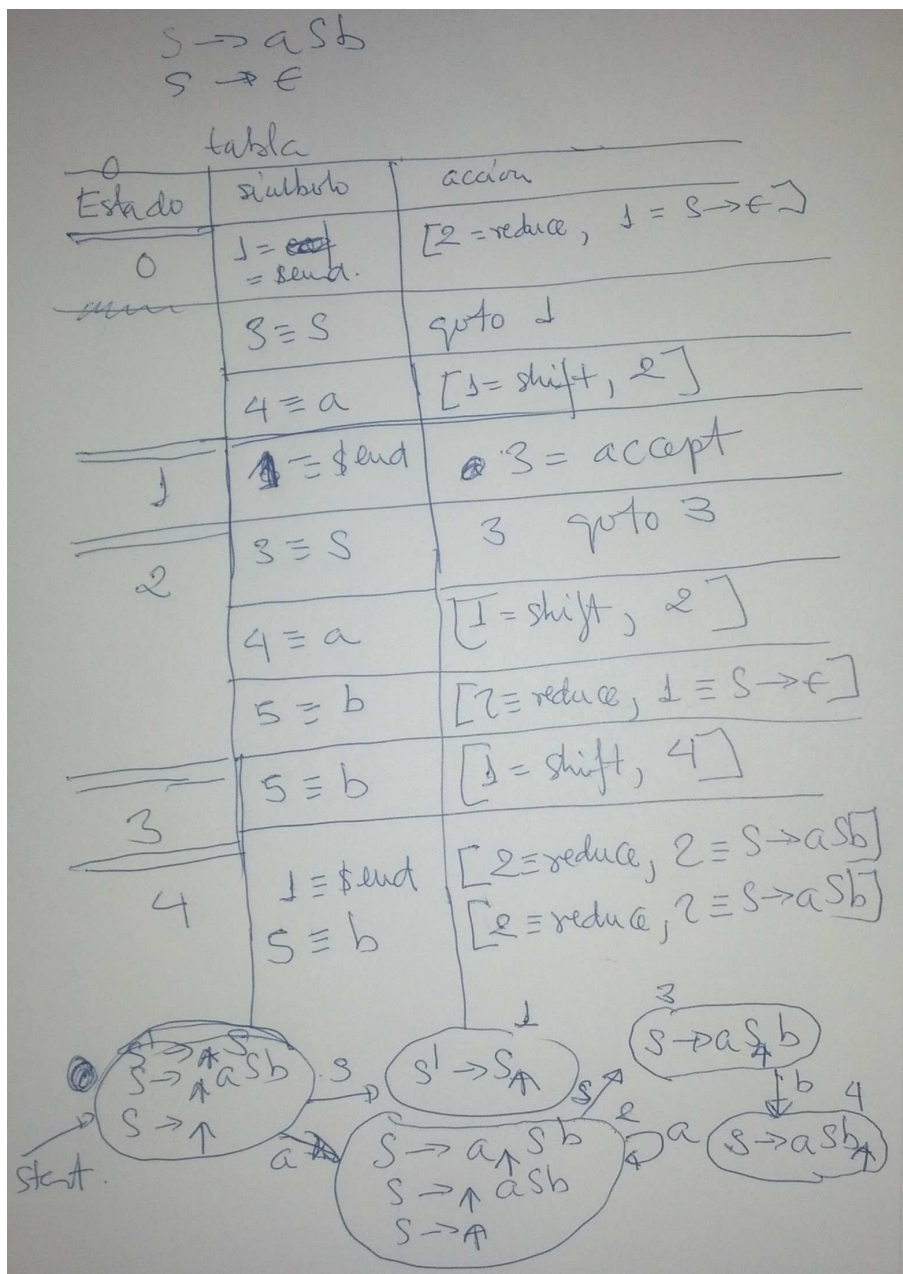 S → aSb
S → ϵ
tabla
Estado símbolo acción
0 1 = = $end. [2 = reduce, 1 = S → ϵ]
3 ≡ S goto 1
4 ≡ a [1 = shift, 2]
1 1 ≡ $end 3 = accept
2 3 ≡ S 3 goto 3
4 ≡ a [1 = shift, 2]
5 ≡ b [2 ≡ reduce, 1 ≡ S → ϵ]
3 5 ≡ b [1 = shift, 4]
4 1 ≡ $end [2 ≡ reduce, 2 ≡ S → aSb]
5 ≡ b [2 ≡ reduce, 2 ≡ S → aSb]
start.
S' → ↑ S
S → ↑ aSb
S → ↑
S
a
1
S' → S↑
S
2
S → a↑Sb
S → ↑ aSb
S → ↑
a
3
S → aS↑b
b
4
S → aSb↑